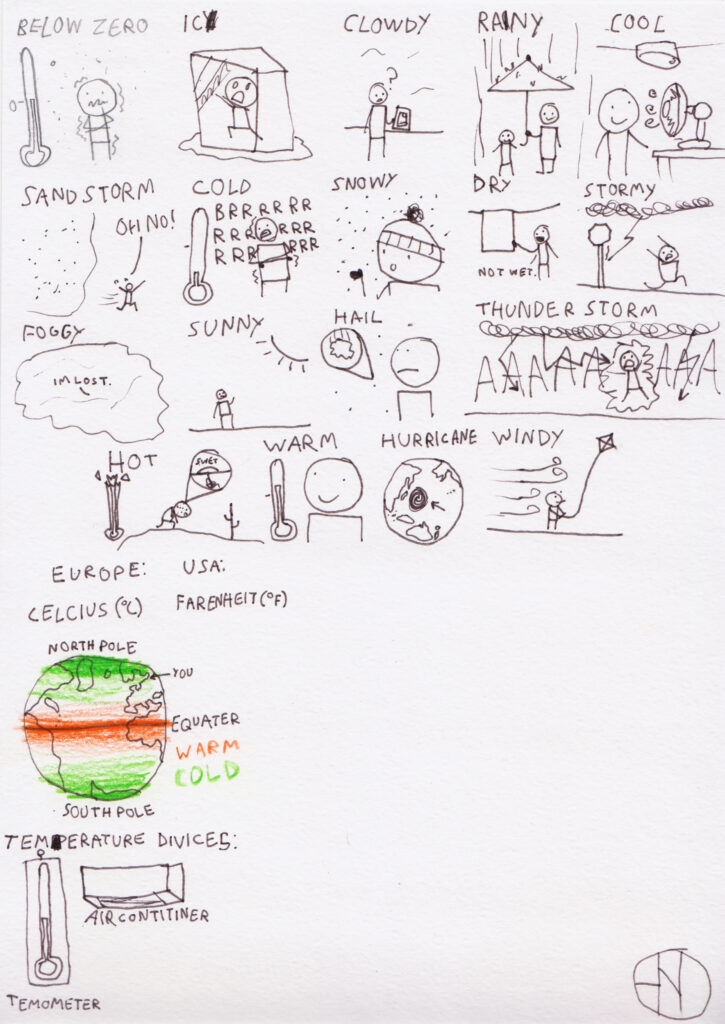 BELOW ZERO
ICY
CLOWDY
RAINY
COOL
0-
?
SAND STORM
OH NO!
COLD
BRRRRRR
RRR RRR
RRR RRR
SNOWY
DRY
NOT WET.
STORMY
FOGGY
IM LOST.
SUNNY
HAIL
THUNDER STORM
AAAAAAAAA
HOT
SWET
WARM
HURRICANE
WINDY
EUROPE:
USA:
CELCIUS (°C)
FARENHEIT (°F)
NORTH POLE
YOU
EQUATER
WARM
COLD
SOUTH POLE
TEMPERATURE DIVICES:
AIRCONTITINER
TEMOMETER